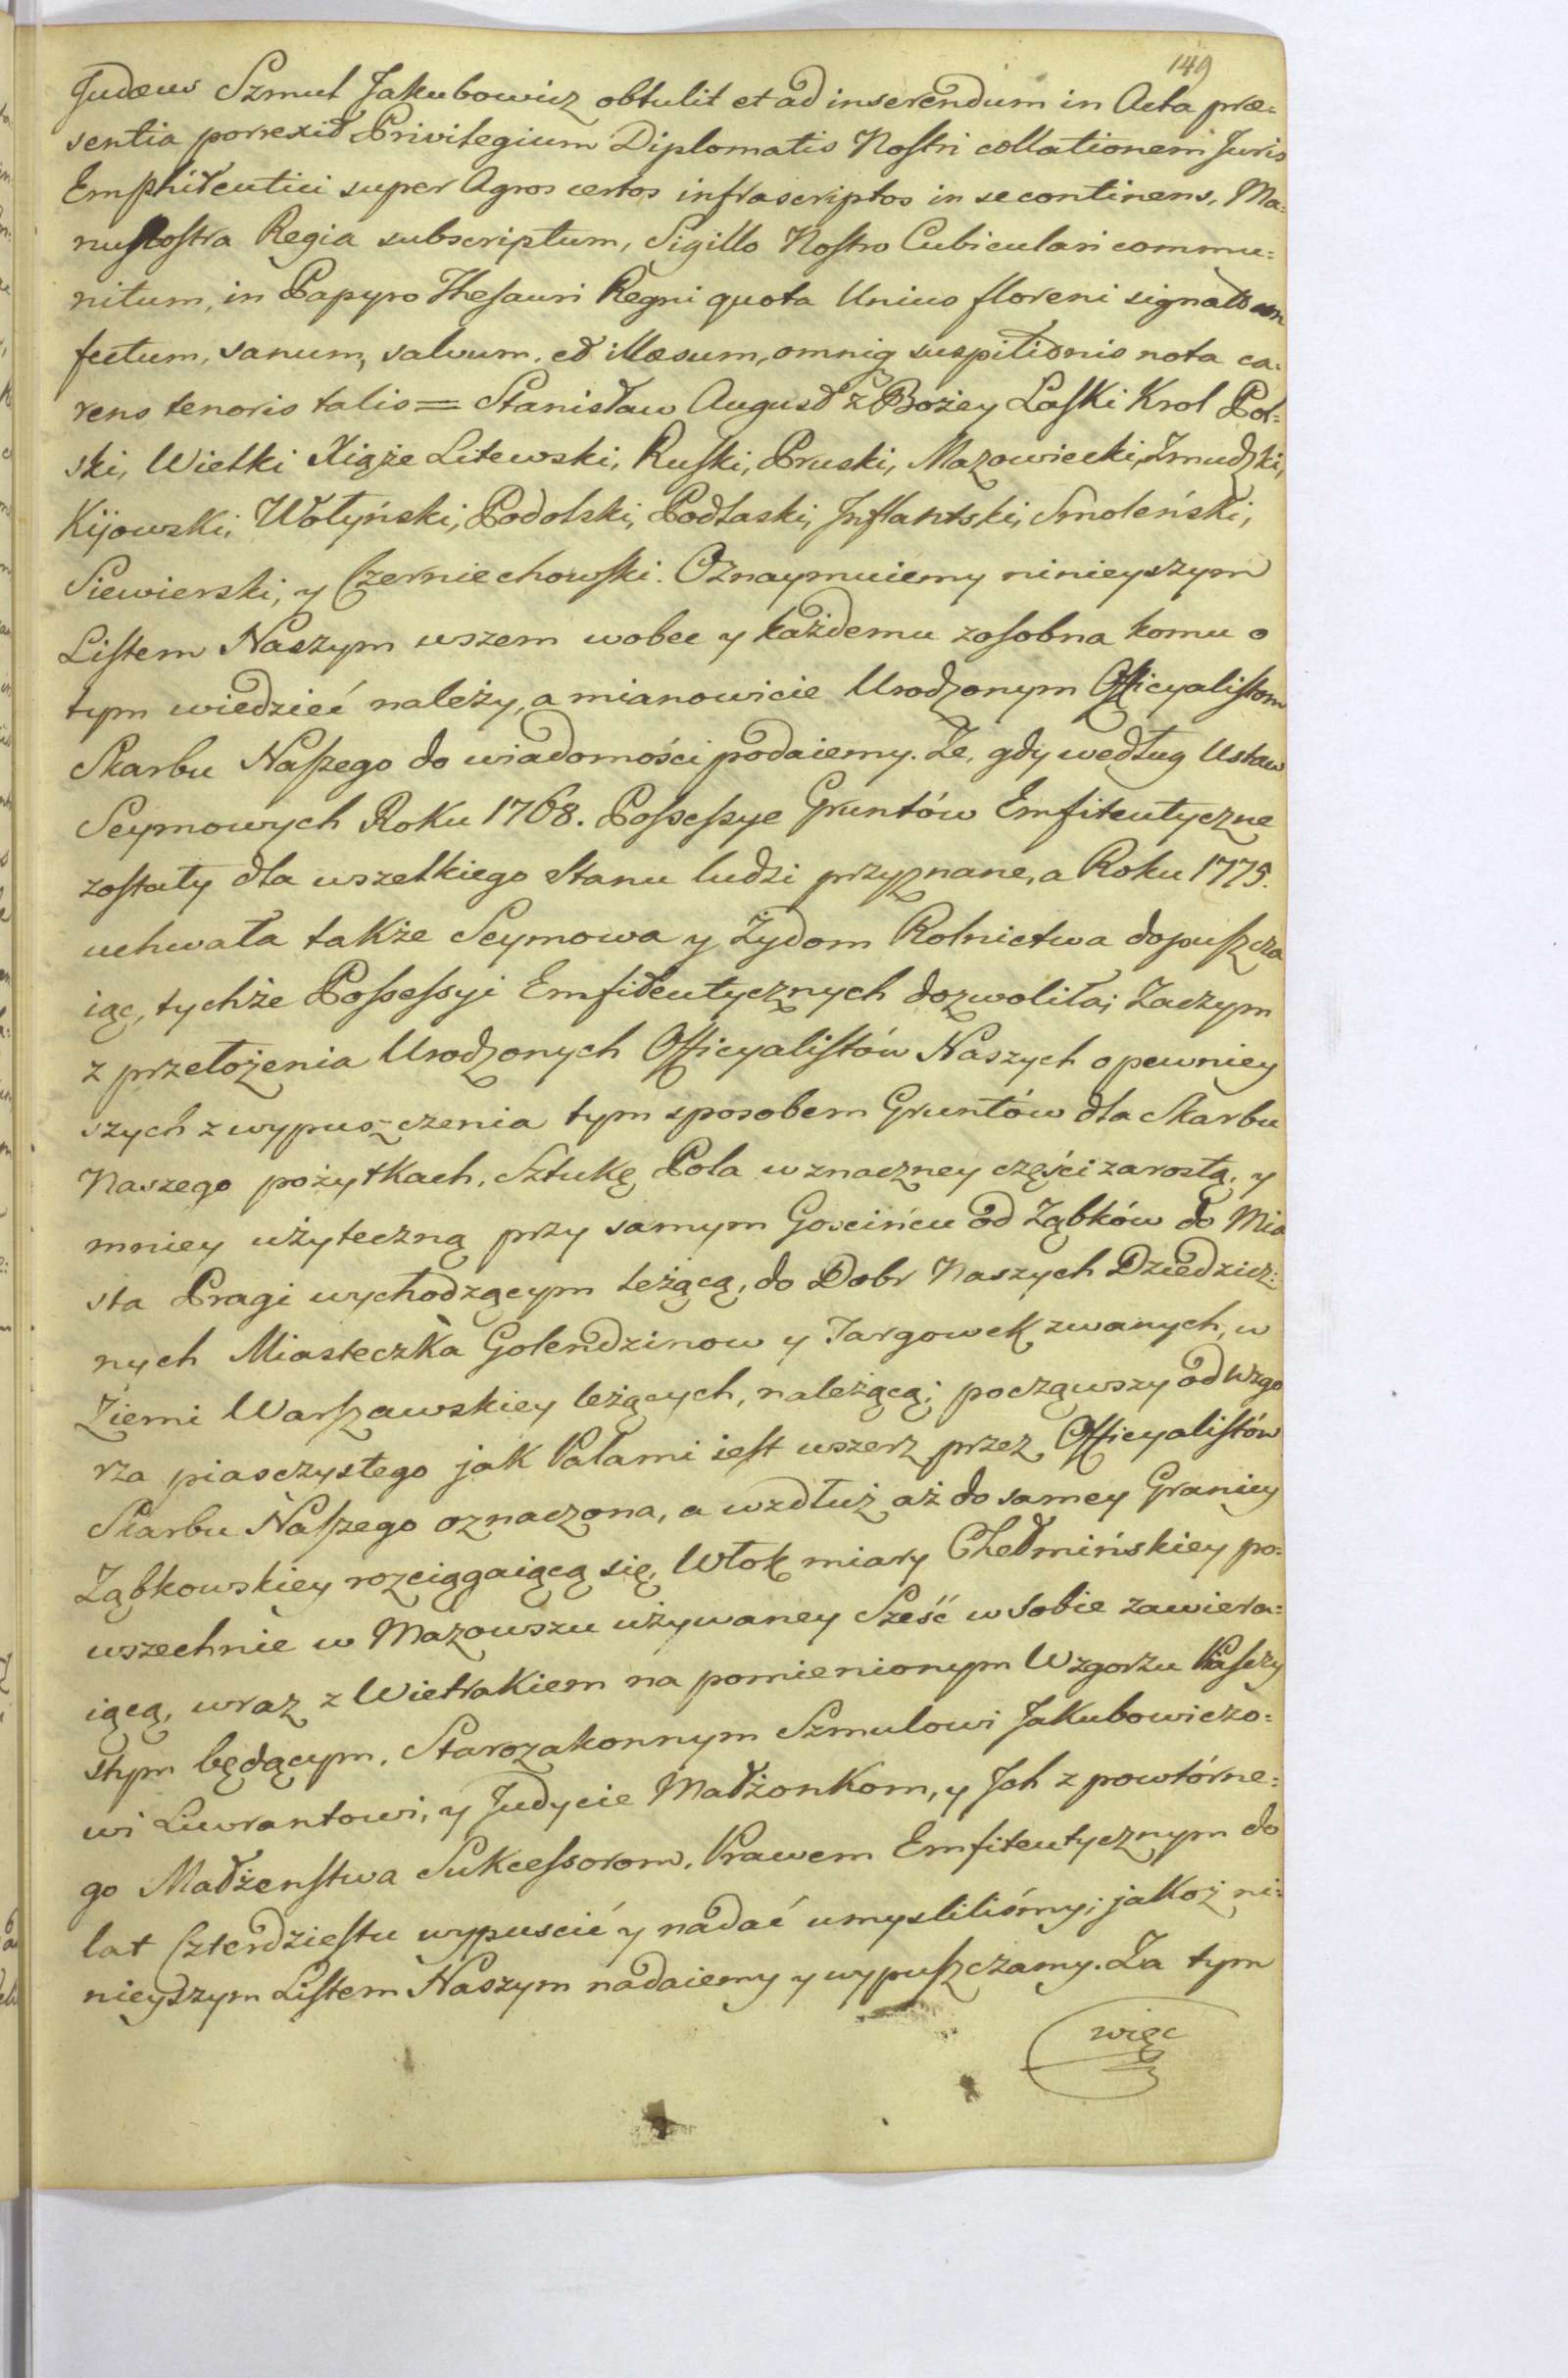 149
Judæus Szmul Jakubowicz obtulit et ad inserendum in Acta præ=
sentia porrexit Privilegium Diplomatis Nostri collationem Juris
Emphiteutici super Agros certos infrascriptos in se continens, Ma=
nu Nostra Regia subscriptum, Sigillo Nostro Cubiculari commu=
nitum, in Papyro Thesauri Regni quota Unius floreni signato con
fectum, sanum, salvum, et illæsum, omniq suspitionis nota ca=
rens tenoris talis = Stanisław August z Bożey Łaski Krol Pol=
ski, Wielki Xiąże Litewski, Ruski, Pruski, Mazowiecki, Zmudzki,
Kijowski, Wołyński, Podolski, Podlaski, Inflantski, Smoleński,
Siewierski, y Czerniechowski. Oznaymuiemy ninieyszym
Listem Naszym wszem wobec y każdemu zosobna komu o
tym wiedzieć należy, a mianowicie Urodzonym Officyalistom
Skarbu Naszego do wiadomości podaiemy. Ze, gdy według Ustaw
Seymowych Roku 1768. Possessye Gruntów Emfiteutyczne
zostały dla wszelkiego Stanu ludzi przyznane, a Roku 1775.
uchwała także Seymowa y Żydom Rolnictwa dopuszcza
iąc, tychże Possessyi Emfiteutycznych dozwoliła; Zaczym
z przełożenia Urodzonych Officyalistów Naszych o pewniey
szych z wypuszczenia tym sposobem Gruntów dla Skarbu
Naszego pożytkach, Sztukę Pola w znaczney części zarosłą, y
mniey użyteczną przy samym Gościńcu od Ząbków do Mia
sta Pragi wychodzącym leżącą, do Dobr Naszych Dziedzicz=
nych Miasteczka Golendzinow y Targowek zwanych, w
Ziemi Warszawskiey leżących, należącą; począwszy od Wzgo
rza piasczystego jak Palami iest wszerz przez Officyalistów
Skarbu Naszego oznaczona, a wzdłuż aż do samey Granicy
Ząbkowskiey rozciągaiącą się, Włok miary Chełmińskiey po=
wszechnie w Mazowszu używaney Sześć w sobie zawiera=
iącą, wraz z Wiatrakiem na pomienionym Wzgorzu Piasczy
stym będącym, Starozakonnym Szmulowi Jakubowiczo=
wi Liwrantowi, y Judycie Małżonkom, y Ich z powtórne=
go Małżenstwa Sukcessorom, Prawem Emfiteutycznym do
lat Czterdziestu wypuscić y nadać umysliliśmy; jakoż ni=
nieyszym Listem Naszym nadaiemy y wypuszczamy. Za tym
więc